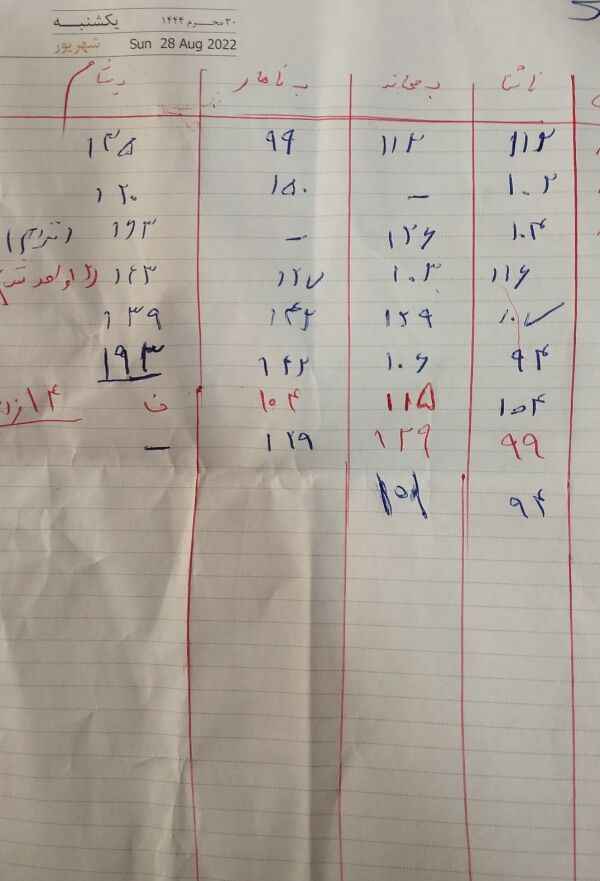 ۳۰ محرم ۱۴۴۴ یکشنبه
Sun 28 Aug 2022 شهریور
ناشتا ب صبحانه ب ناهار ب شام
۱۱۲ ۱۱۲ ۹۹ ۱۳۵
۱۰۲ – ۱۵۰ ۱۲۰
۱۰۴ ۱۲۶ – ۱۶۳ (نزدم)
۱۱۶ ۱۰۳ ۱۲۷ ۱۶۳ واحد
۱۰۷ ۱۲۹ ۱۴۲ ۱۳۹
۹۴ ۱۰۶ ۱۴۲ ۱۹۳
۱۰۴ ۱۱۵ ۱۰۴ ف ۱۴
۹۹ ۱۲۹ ۱۲۹ –
۹۴ ۱۰۱